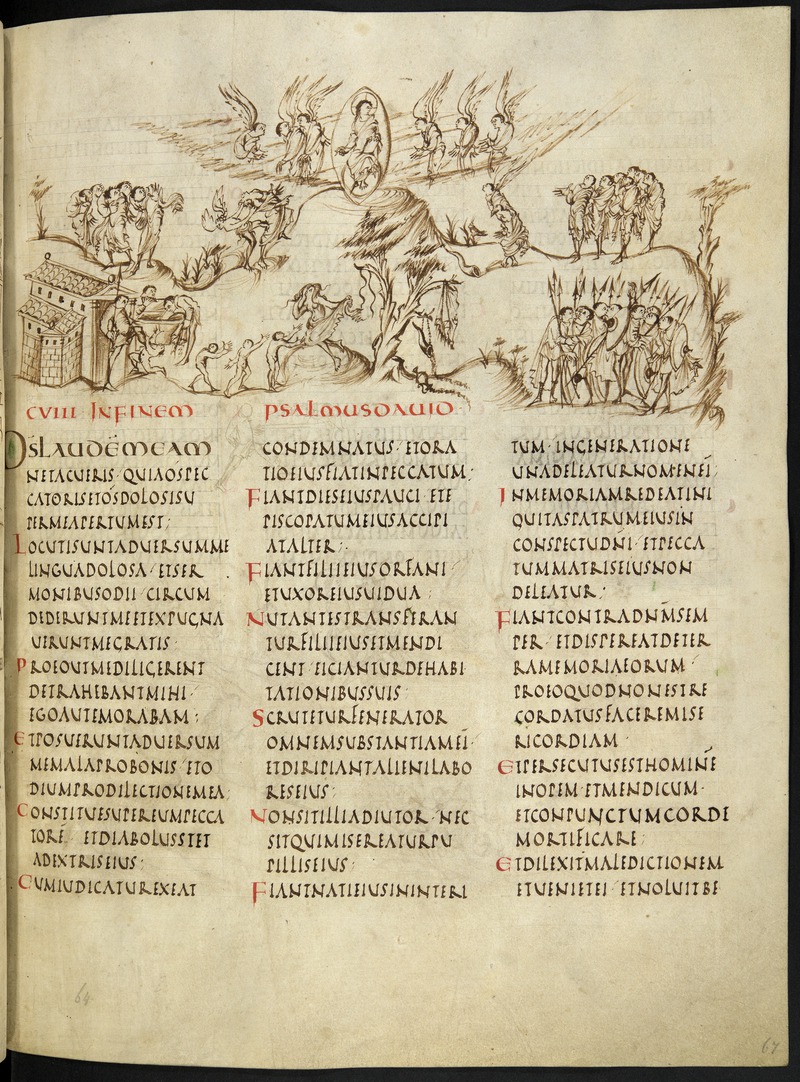 CVIII INFINEM PSALMUSDAUID
DSLAUDĒMEAM
NETACUERIS · QUIAOSPEC
CATORISETOSDOLOSISU
PERMEAPERTUMEST;
LOCUTISUNTADUERSUMME
LINGUADOLOSA · ETSER
MONIBUSODII · CIRCUM
DEDERUNTMEETEXPUGNA
UERUNTMEGRATIS
PROEOUTMEDILIGERENT
DETRAHEBANTMIHI ·
EGOAUTEMORABAM;
ETPOSUERUNTADUERSUM
MEMALAPROBONIS · ETO
DIUMPRODILECTIONEMEA
CONSTITUESUPEREUMPECCA
TORĒ · ETDIABOLUSSTET
ADEXTRISEIUS;
CUMIUDICATUREXEAT
CONDEMNATUS · ETORA
TIOEIUSFIATINPECCATUM;
FIANTDIESEIUSPAUCI · ETE
PISCOPATUMEIUSACCIPI
ATALTER;
FIANTFILIIEIUSORFANI
ETUXOREIUSUIDUA;
NUTANTESTRANSFERAN
TURFILIIEIUSETMENDI
CENT · EICIANTURDEHABI
TATIONIBUSSUIS
SCRUTETURFENERATOR
OMNEMSUBSTANTIAMEI ·
ETDIRIPIANTALIENILABO
RESEIUS;
NONSITILLIADIUTOR · NEC
SITQUIMISEREATURPU
PILLISEIUS;
FIANTNATIEIUSININTERI
TUM · INGENERATIONE
UNADELEATURNOMENEI;
INMEMORIAMREDEATINI
QUITASPATRUMEIUSIN
CONSPECTUDNI · ETPECCA
TUMMATRISEIUSNON
DELEATUR;
FIANTCONTRADNMSEM
PER · ETDISPEREATDETER
RAMEMORIAEORUM
PROEOQUODNONESTRE
CORDATUSFACEREMISE
RICORDIAM
ETPERSECUTUSESTHOMINĒ
INOPEM · ETMENDICUM ·
ETCONPUNCTUMCORDE
MORTIFICARE;
ETDILEXITMALEDICTIONEM
ETUENIETEI · ETNOLUITBE
64
67